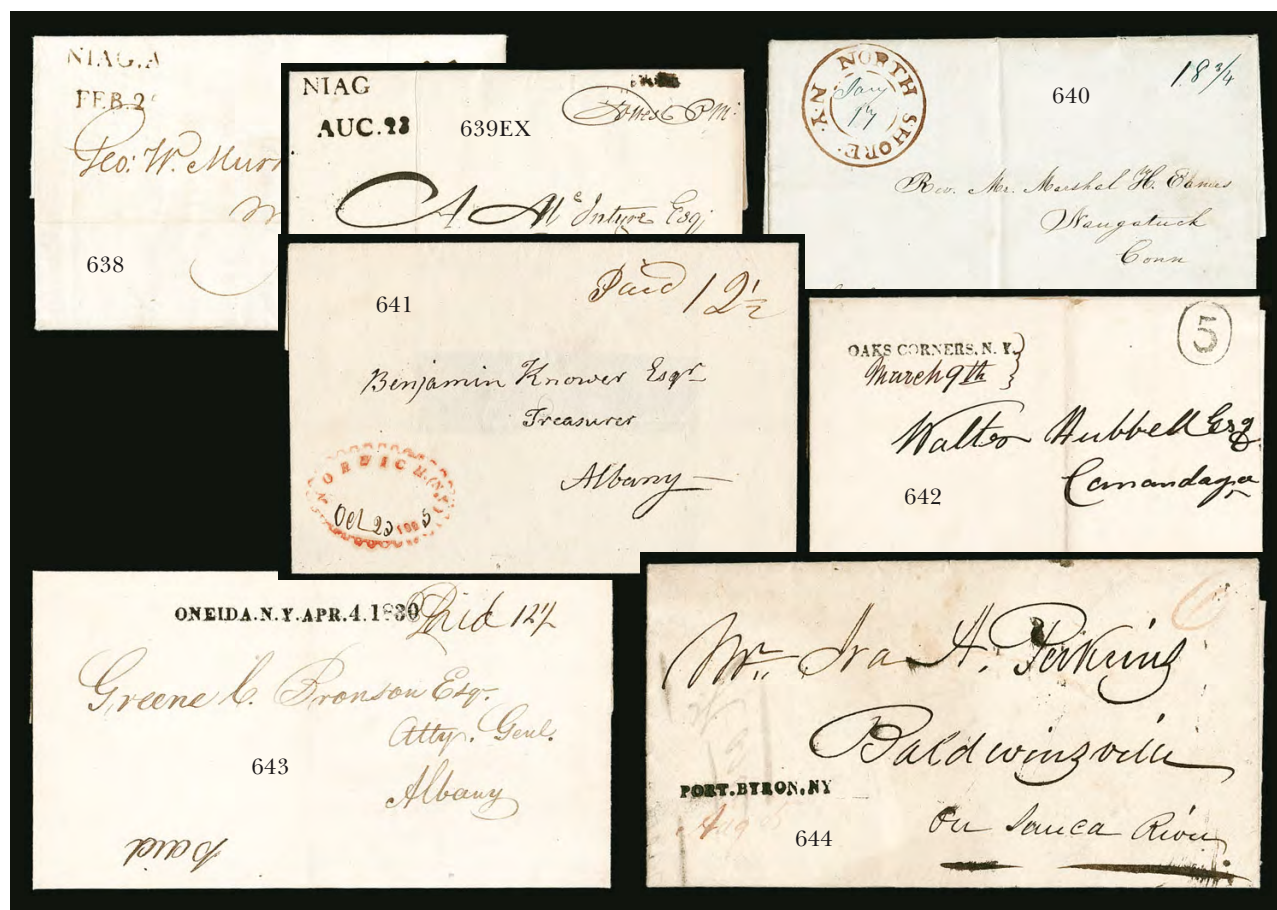 NIAG.
FEB.2
Geo: W. Murr
638
NIAG
AUC.23
639EX
Jones P M:
A Mc Intyre Esq;
NORTH SHORE N.Y.
Jany
17
640
18 3/4
Rev. Mr. Marshal H.
Naugatuck
Conn
641
Paid 12½
Benjamin Knower Esqr
Treasurer
Albany
NORWICH. (N.Y.)
Oct 23
5
OAKS CORNERS. N.Y.
March 9th
Walter Hubbell Esq
Canandaga
642
ONEIDA.N.Y.APR.4.1830
Paid 12½
Greene C. Bronson Esqr.
Atty. Genl.
Albany
643
paid
Mr. Ira A. Perkins
Baldwinsville
PORT.BYRON.NY
Aug
on Senca River
644